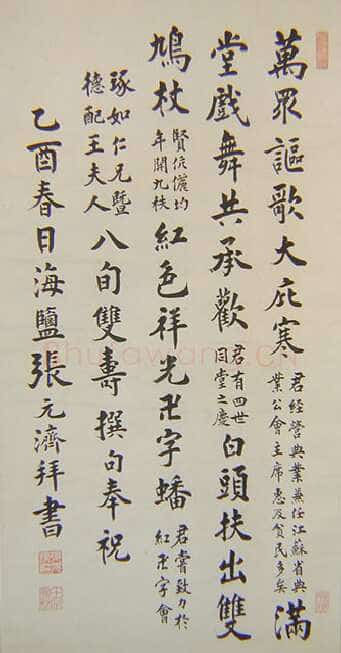 萬眾謳歌大庇寒君經營典業兼任江蘇省典業公會主席惠及貧民多矣滿
堂戲舞共承歡君有四世同堂之慶白頭扶出雙
鳩杖賢伉儷均年開九秩紅色祥光卍字蟠君嘗致力於紅卍字會
琢如仁兄暨
德配王夫人八旬雙壽撰句奉祝
乙酉春日海鹽張元濟拜書